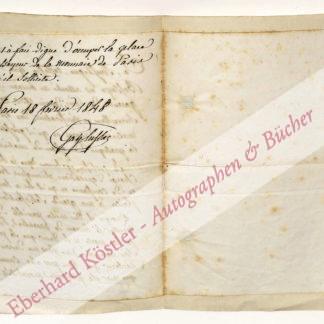 t à fait digne d'occuper la place
Essayeur de la monnaie de Paris
'il sollicite.
Paris 18 février 1848
Gay Lussac
Eberhard Köstler - Autographen & Bücher